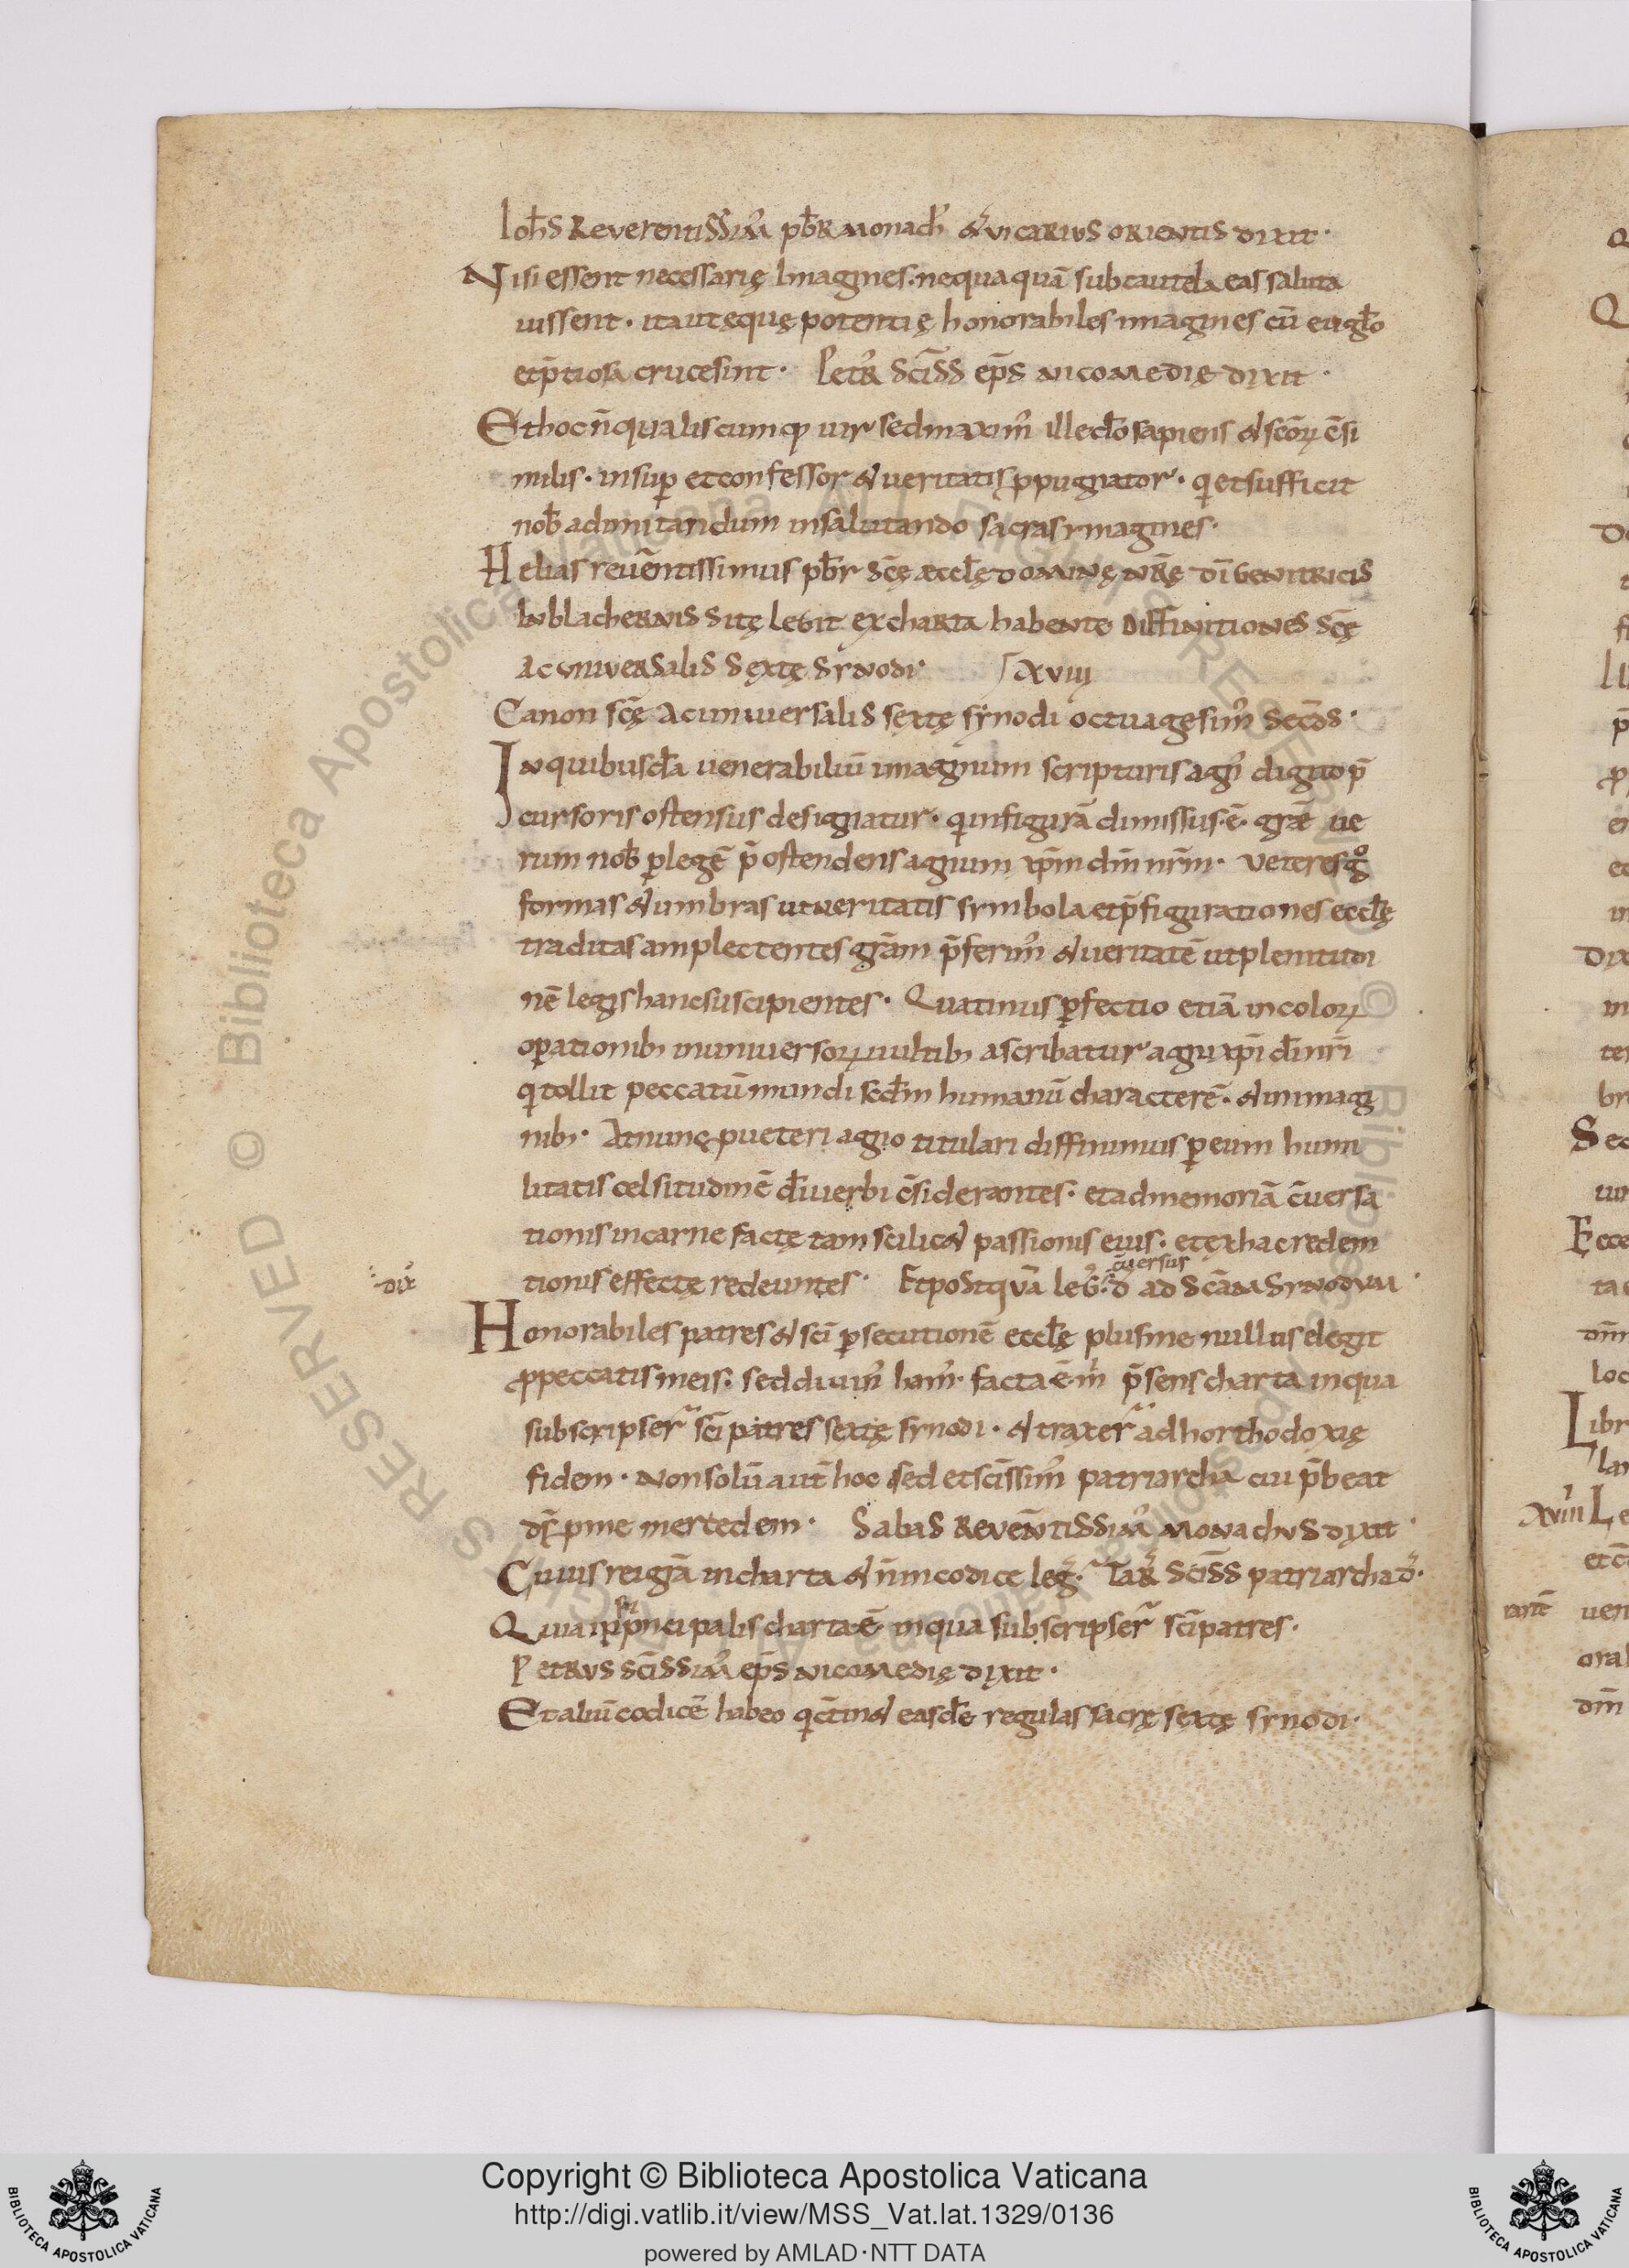 Ioh̅s Reverentissim᾿ pb̅r monach᾿ & vicarius orientis dixit·
Nisi essent necessarię Imagines· nequaquā sub tautela eas saluta
uissent· ita ut ęque potentię honorabiles imagines cū eug̅lo
et p̄tiosa cruce sint· Petr᾿ sc̅iss ep̅s nicomedię dixit·
Et hoc n̄ qualiscumq; uir sed maxim᾿ ille d̅o sapiens & sc̅oꝝ c̅si
milis· insup̱ et confessor & ueritatis ꝓpugnator· q̇ et sufficit
nob̅ ad imitandum in salutando sacras ymagines·
Helias reuēntissimus pb̅r sc̅ę æccl̅ę dominę nr̅ę d̅i genitricis
In blachernis sitę legit ex charta habente diffinitiones sc̅ę
ac universalis sextę synodi· XVIII
Canon sc̅ę ac uniuersalis sextę synodi octuagesim᾿ sec̅ds·
In quibusd̅a uenerabiliū imaginum scripturis agn᾿ digito p̄
cursoris ostensus designatur· q̇ in figurā dimissus·ē· gr̅æ ue
rum nob̅ p̱ legē p̄ostendens agnum xp̅m dn̅m nr̅m· Veteres g°
formas & umbras ut ueritatis symbola et p̄figurationes eccl̅ę
traditas amplectentes gr̅am p̄ferim᾿ & ueritatē ut plenitudi
nē legis hanc suscipientes· Quatinus p̱fectio etiā in coloꝝ
op̱ationib; in uniuersoꝝ uultib; ascribatur agni xp̅i d̅i nr̅i
q̇ tollit peccatū mundi scd̅m humanū characterē· & in imagi
nib;· At nunc p̱ ueteri agno titulari diffinimus p̱ eum humi
litatis celsitudinē d̅i uerbi c̅siderantes· et ad memoriā c̅uersa
tionis in carne factę tam scilic& passionis eius· et ex hac redem
c̅uersus
dix̅
tionis effectę redeuntes· Et postquā leg᾿·d̅ ad sc̅am synodum·
Honorabiles patres & sc̅i p̱secutionē eccl̅ę plus me nullus elegit
ꝓ peccatis meis· sed diuin᾿ ham᾿ facta·ē· m᾿ p̄sens charta in qua
subscripser̄ sc̅i patres sextę synodi· & traxer̄ ad horthodoxię
fidem· Non solū aut̅ hoc sed et sc̅issim᾿ patriarcha cui p̄beat
d̅s p̱ me mercedem· Sabas reuēntissim᾿ monachus dixit·
Cuius rei gr̅a in charta & n̄ in codice leg᾿· Tar᾿ sc̅iss patriarcha d᾿·
Quia ip̅a principalis charta·ē· in qua subscripser̄ sc̅i patres·
Petrus sc̅issim᾿ ep̅s nicomedię dixit·
Et aliū codicē habeo q̇ c̅tin& easd̅e regulas sacrę sextę synodi·
Copyright © Biblioteca Apostolica Vaticana
http://digi.vatlib.it/view/MSS_Vat.lat.1329/0136
powered by AMLAD·NTT DATA
BIBLIOTECA APOSTOLICA VATICANA
BIBLIOTECA APOSTOLICA VATICANA